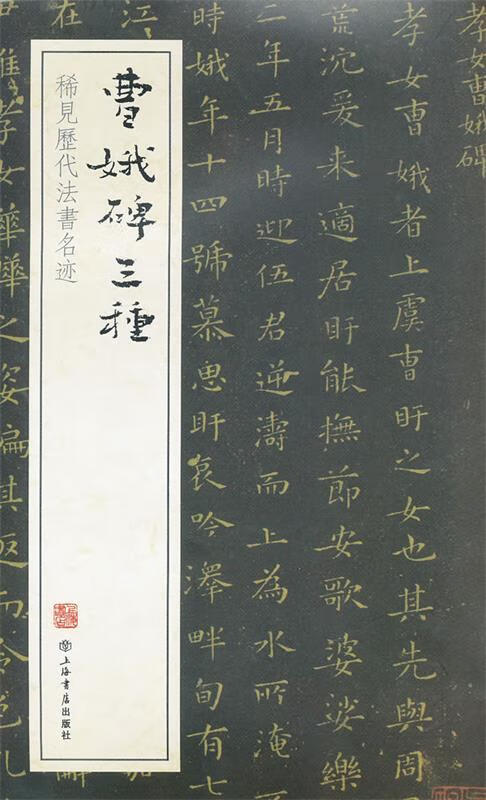 曹娥碑三種
稀見歷代法書名迹
上海书店出版社
孝女曹娥碑
孝女曹娥者上虞曹盱之女也其先與周
荒沉爰来適居盱能撫節安歌婆娑樂
二年五月時迎伍君逆濤而上為水所淹
時娥年十四號慕思盱哀吟澤畔旬有七
江
惟孝女曄曄之姿偏其返而令色孔